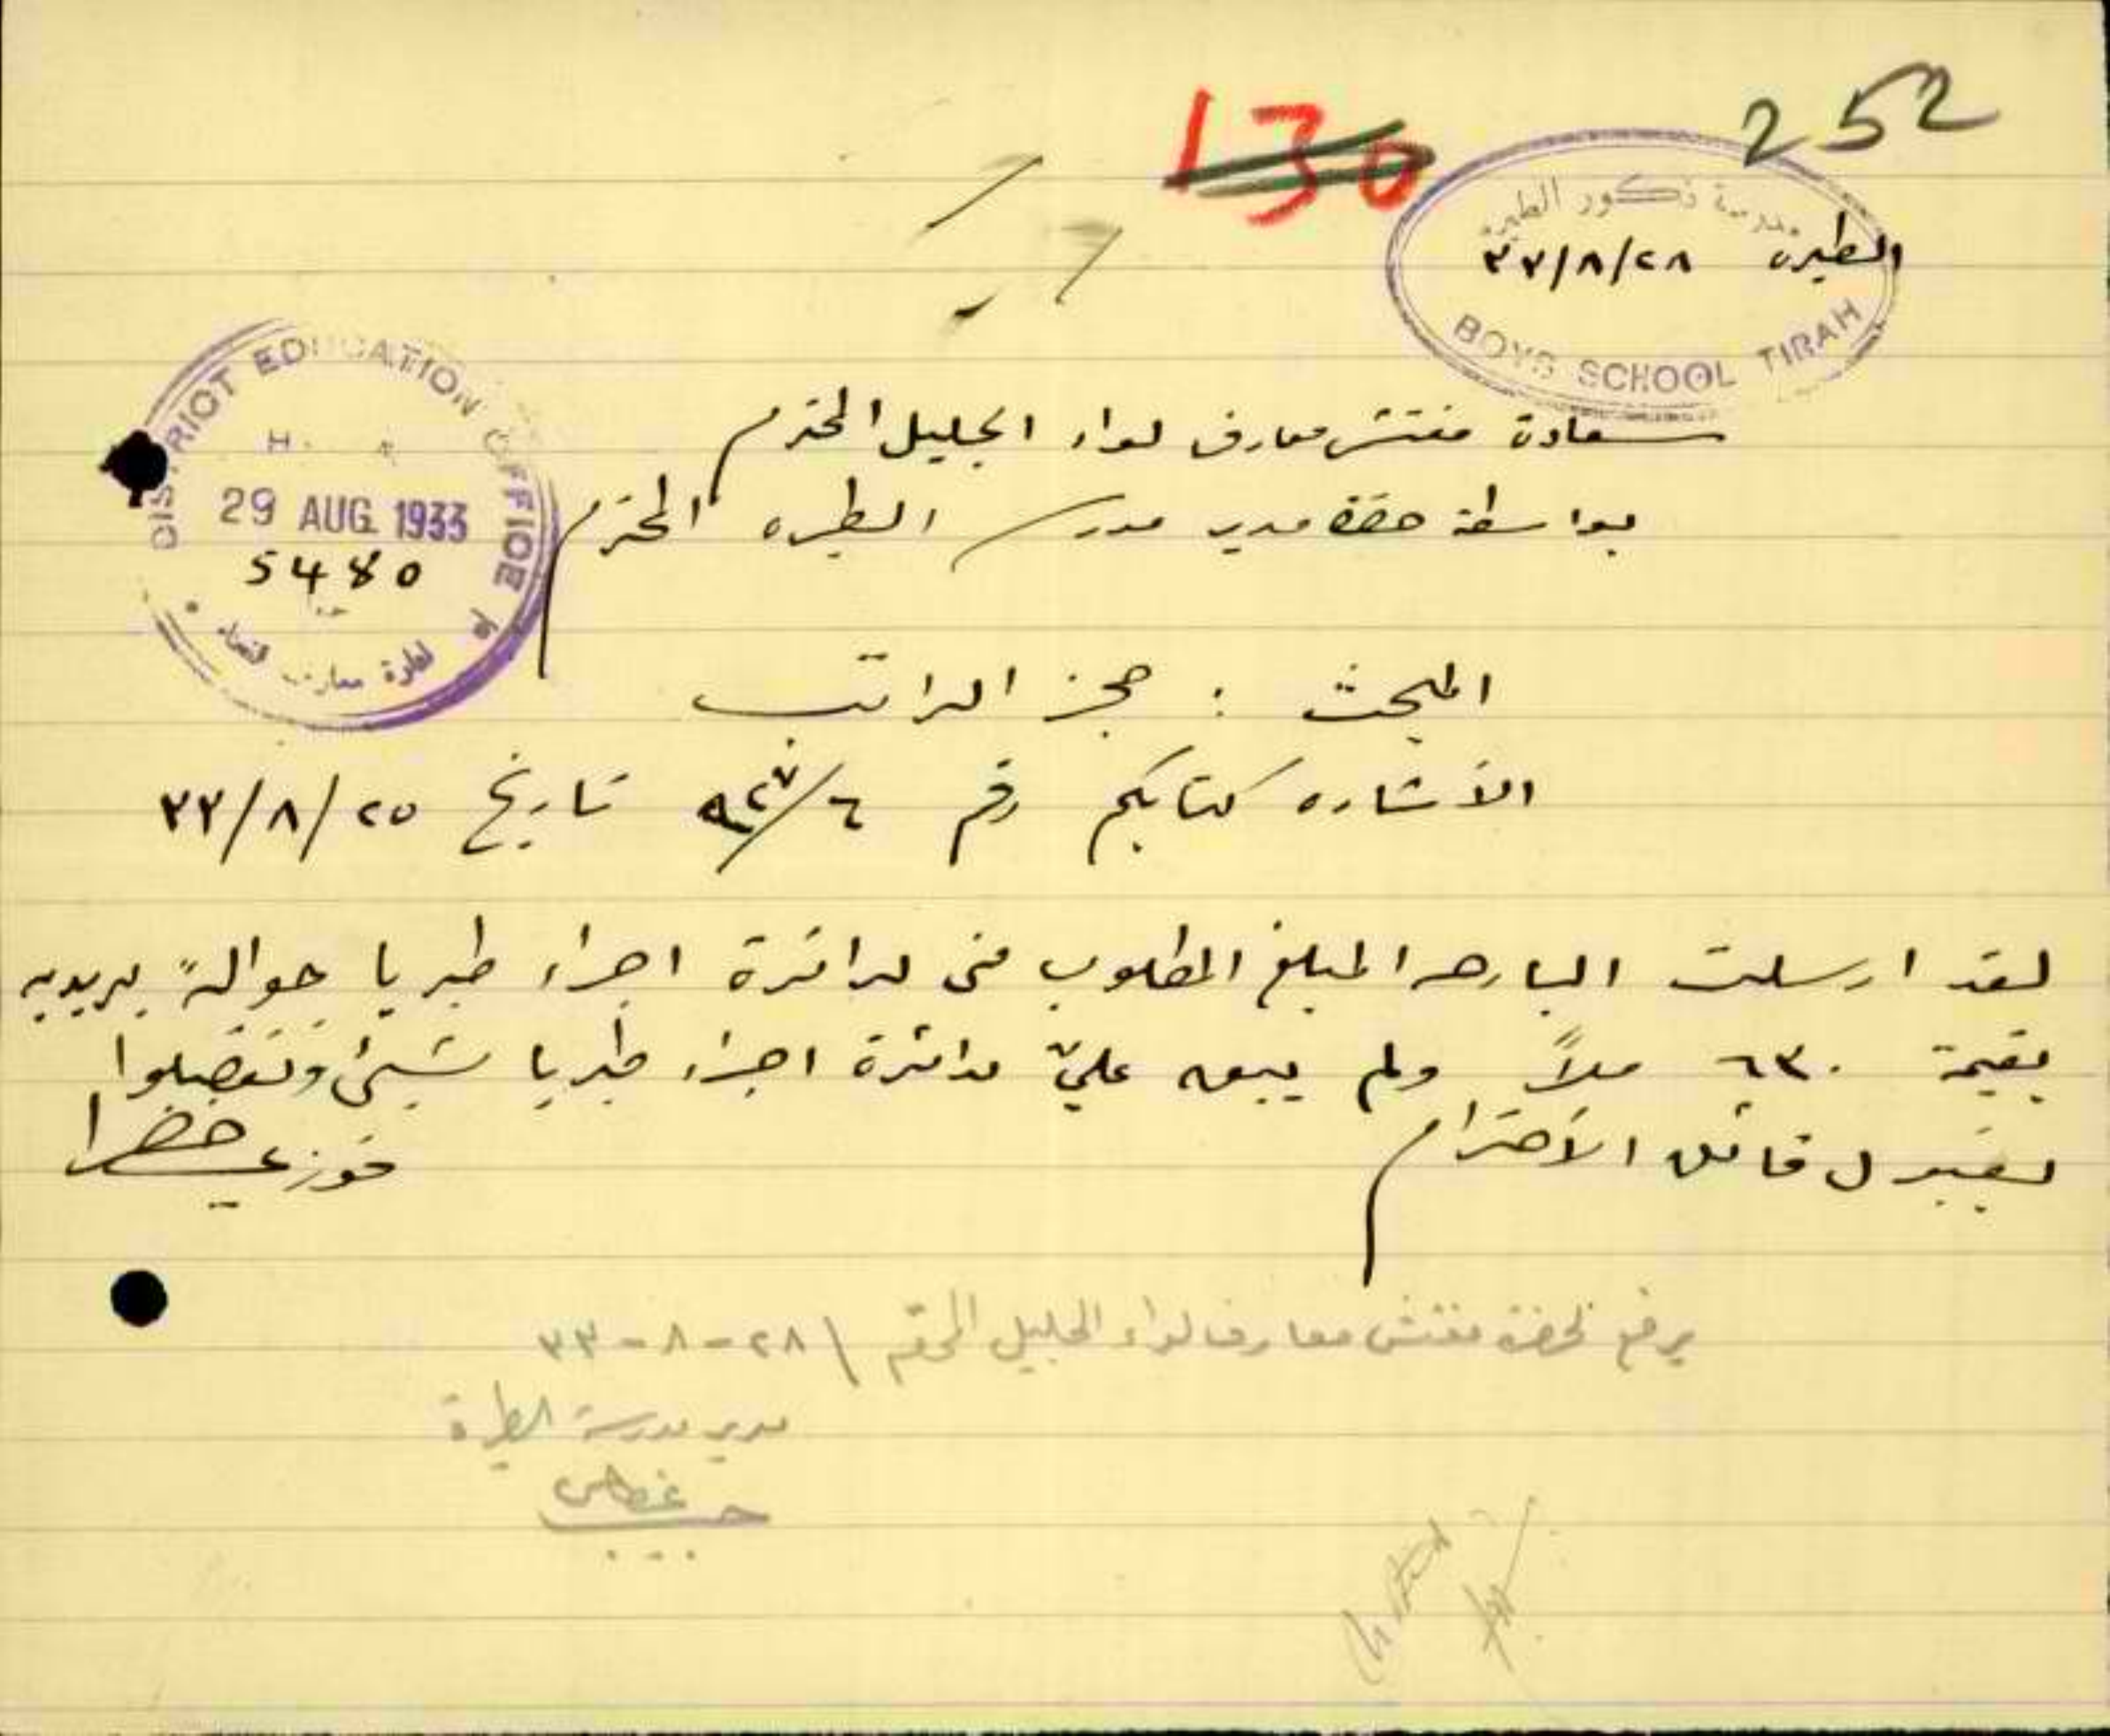 252
130
مدرسة ذكور الطيرة
الطيره ٢٨/٨/٣٣
BOYS SCHOOL TIRAH
DISTRICT EDUCATION OFFICE
29 AUG 1933
5480
سعادة مفتش معارف لواء الجليل المحترم
بواسطة حضرة مدير مدرسة الطيره المحترم
المبحث : حجز الراتب
الأشاره كتابكم رقم ٦/٩٢٧ تاريخ ٢٥/٨/٣٣
لقد ارسلت البارحه المبلغ المطلوب مني لدائرة اجراء طبريا حوالةً بريديه
بقيمة ٦٣٠ ملاً ولم يبق عليّ لدائرة اجراء طبريا شيئ وتفضلوا
بقبول فائق الأحترام
فوزي خضرا
يرفع لحضرة مفتش معارف لواء الجليل المحترم ٢٨-٨-٣٣
مدير مدرسة الطيرة
حبيب